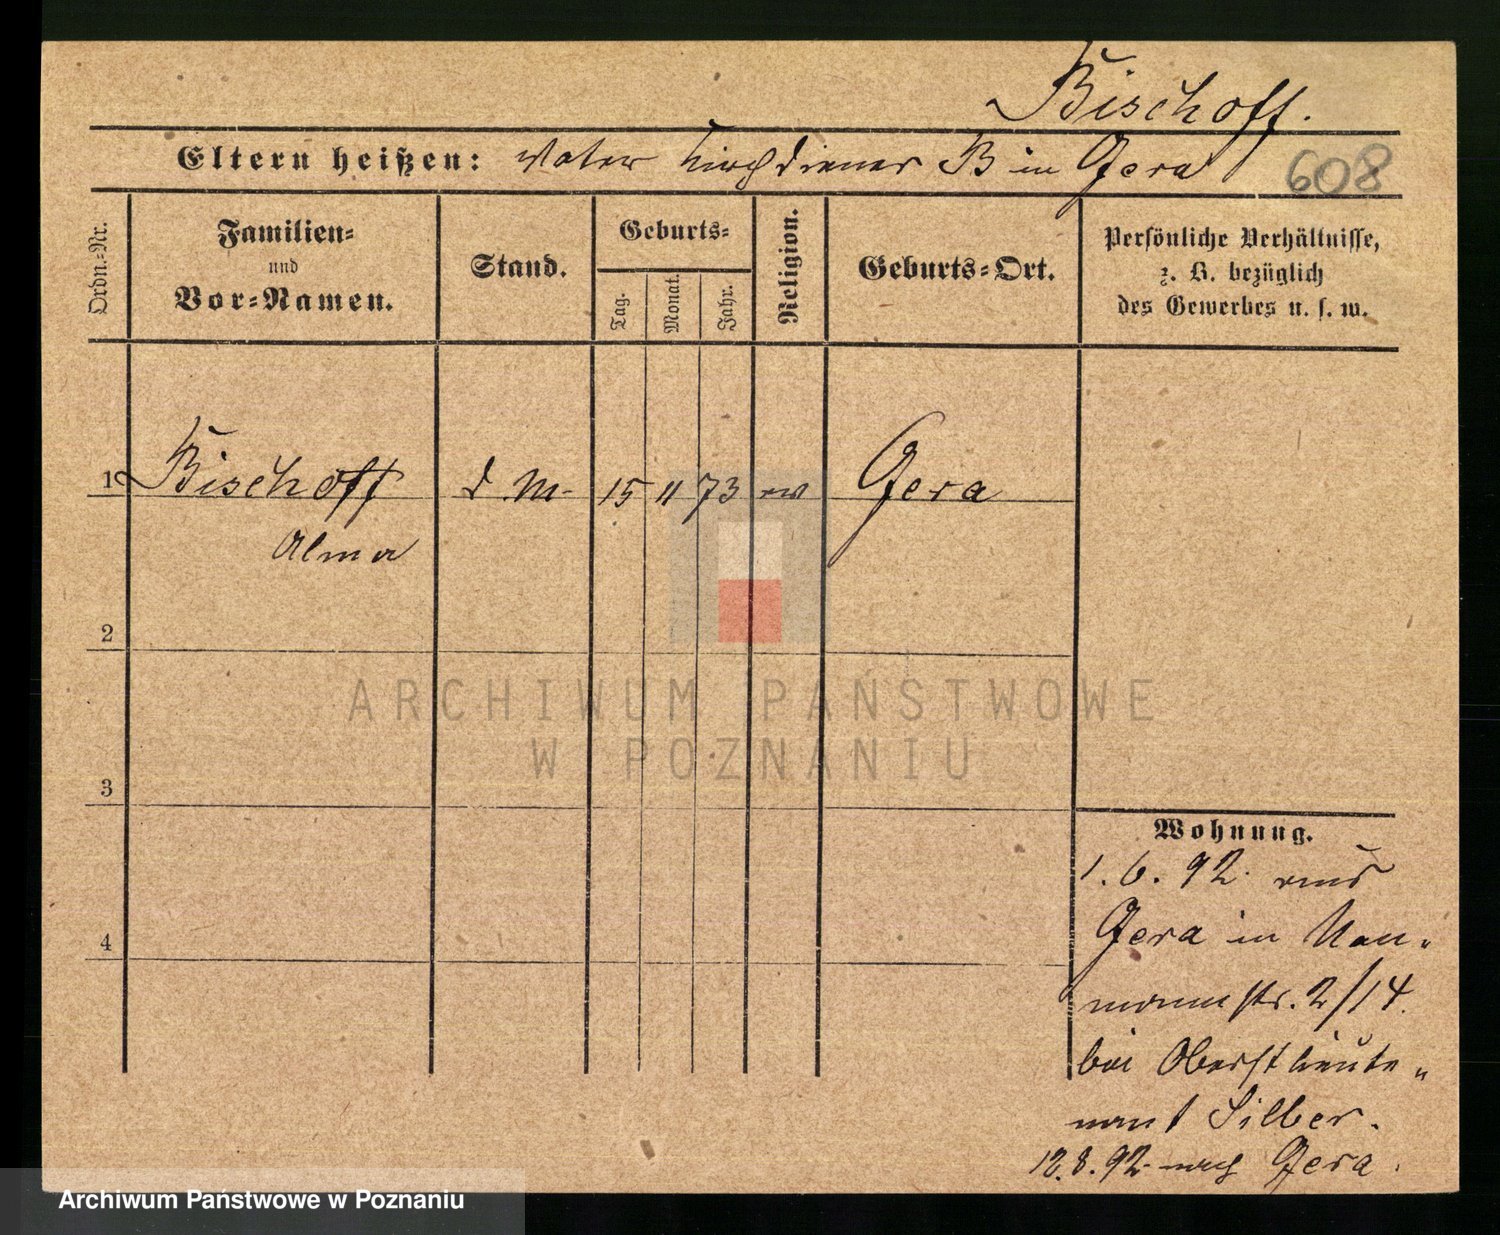 Bischoff.
Eltern heißen: Vater Kirchdiener B in Gera
608
Ordn.-Nr.
Familien-
und
Vor-Namen.
Stand.
Geburts-
Tag.
Monat.
Jahr.
Religion.
Geburts-Ort.
Persönliche Verhältnisse,
z. B. bezüglich
des Gewerbes u. s. w.
1 Bischoff d. M. 15 11 73 ev Gera
Alma
2
3
4
Wohnung.
1. 6. 92. aus
Gera in Nau-
mannstr. 2/14.
bei Oberstleute-
nant Silber.
12.8.92 nach Gera.
ARCHIWUM PAŃSTWOWE
W POZNANIU
Archiwum Państwowe w Poznaniu